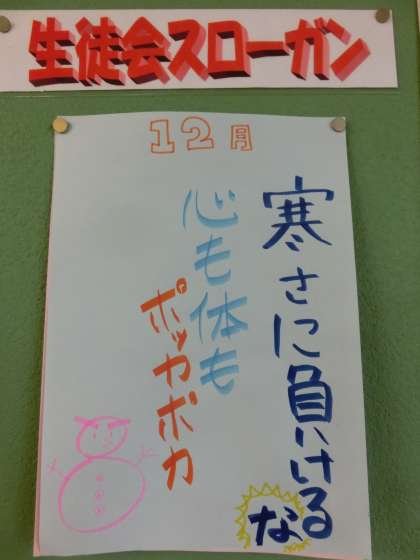 生徒会スローガン
12月
寒さに負けるな
心も体も
ポッカポカ